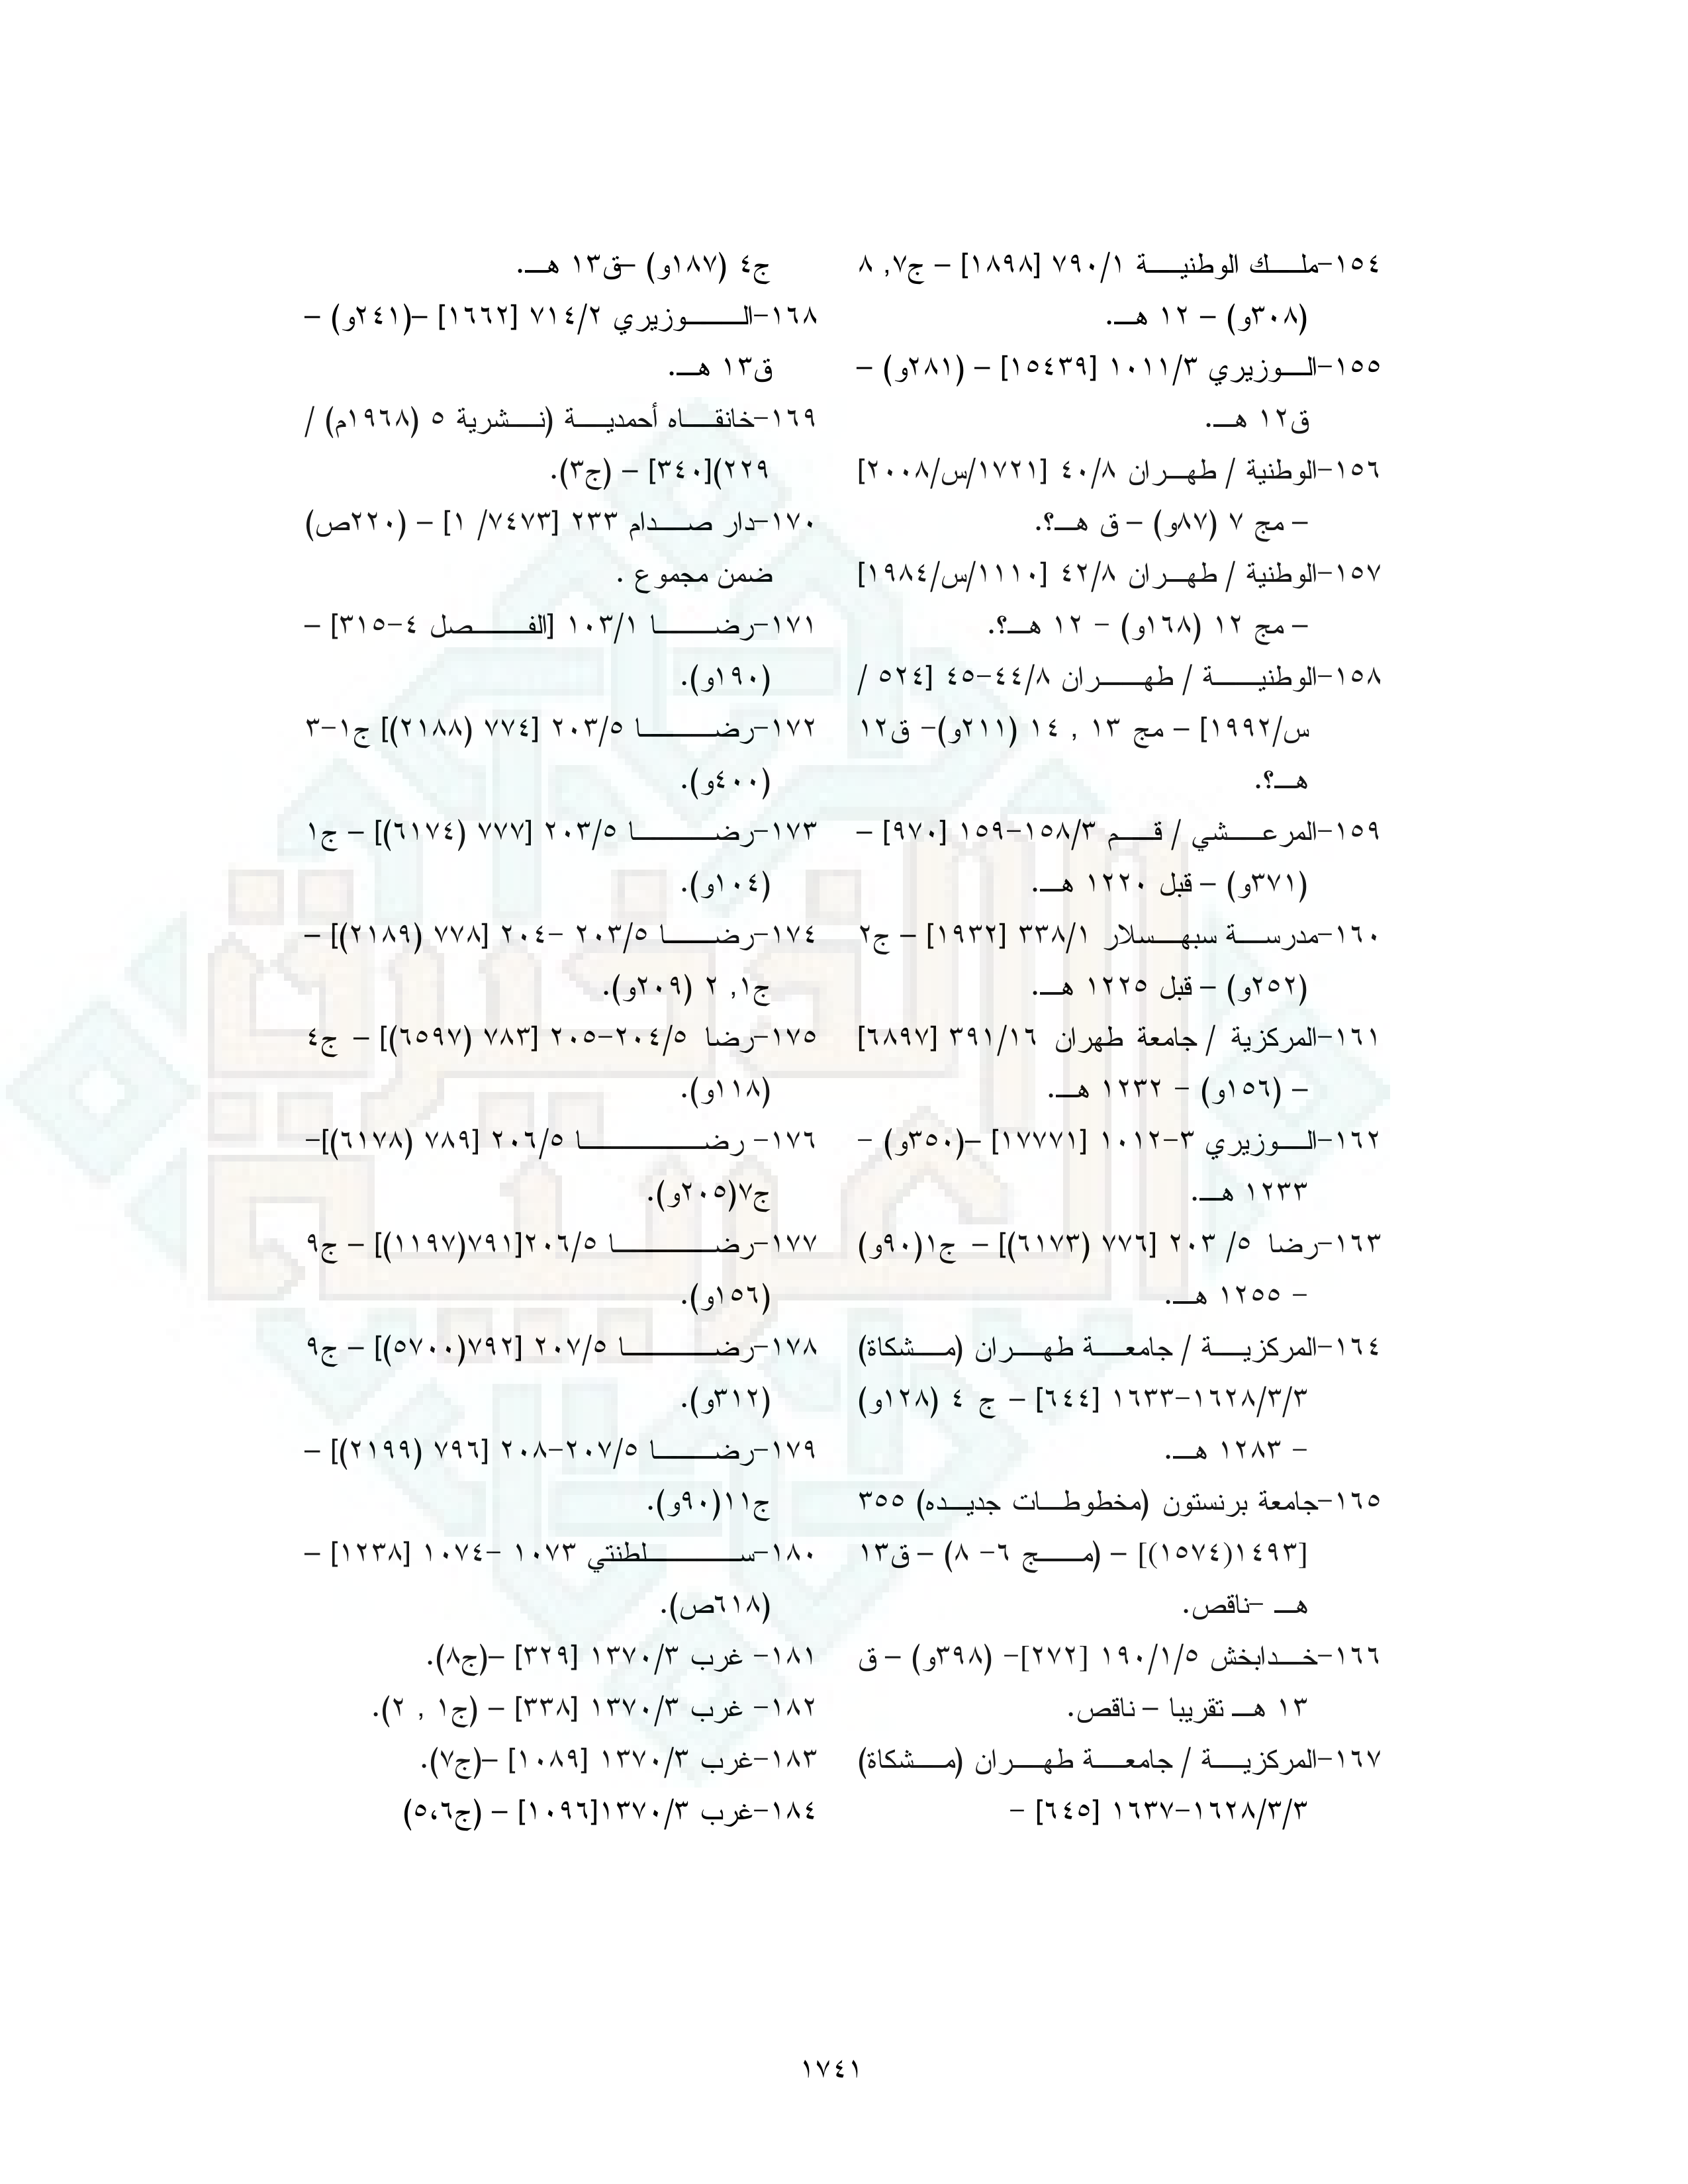 ١٥٤-ملك الوطنية ٧٩٠/١ [١٨٩٨] – ج٧, ٨
(٣٠٨و) – ١٢ هـ.
١٥٥-الوزيري ١٠١١/٣ [١٥٤٣٩] – (٢٨١و) –
ق١٢ هـ.
١٥٦-الوطنية / طهران ٤٠/٨ [١٧٢١/س/٢٠٠٨]
– مج ٧ (٨٧و) – ق هـ؟.
١٥٧-الوطنية / طهران ٤٢/٨ [١١١٠/س/١٩٨٤]
– مج ١٢ (١٦٨و) – ١٢ هـ؟.
١٥٨-الوطنية / طهران ٤٤/٨-٤٥ [٥٢٤ /
س/١٩٩٢] – مج ١٣ , ١٤ (٢١١و)- ق١٢
هـ؟.
١٥٩-المرعشي / قم ١٥٨/٣-١٥٩ [٩٧٠] –
(٣٧١و) – قبل ١٢٢٠ هـ.
١٦٠-مدرسة سبهسلار ٣٣٨/١ [١٩٣٢] – ج٢
(٢٥٢و) – قبل ١٢٢٥ هـ.
١٦١-المركزية / جامعة طهران ٣٩١/١٦ [٦٨٩٧]
– (١٥٦و) – ١٢٣٢ هـ.
١٦٢-الوزيري ٣-١٠١٢ [١٧٧٧١] –(٣٥٠و) –
١٢٣٣ هـ.
١٦٣-رضا ٥/ ٢٠٣ [٧٧٦ (٦١٧٣)] – ج١(٩٠و)
– ١٢٥٥ هـ.
١٦٤-المركزية / جامعة طهران (مشكاة)
١٦٢٨/٣/٣-١٦٣٣ [٦٤٤] – ج ٤ (١٢٨و)
– ١٢٨٣ هـ.
١٦٥-جامعة برنستون (مخطوطات جديده) ٣٥٥
[١٤٩٣(١٥٧٤)] – (مج ٦- ٨) – ق١٣
هـ –ناقص.
١٦٦-خدابخش ١٩٠/١/٥ [٢٧٢]- (٣٩٨و) – ق
١٣ هـ تقريبا – ناقص.
١٦٧-المركزية / جامعة طهران (مشكاة)
١٦٢٨/٣/٣-١٦٣٧ [٦٤٥] –
ج٤ (١٨٧و) –ق١٣ هـ.
١٦٨-الوزيري ٧١٤/٢ [١٦٦٢] –(٢٤١و) –
ق١٣ هـ.
١٦٩-خانقاه أحمدية (نشرية ٥ (١٩٦٨م) /
٢٢٩)[٣٤٠] – (ج٣).
١٧٠-دار صدام ٢٣٣ [٧٤٧٣/ ١] – (٢٢٠ص)
ضمن مجموع .
١٧١-رضا ١٠٣/١ [الفصل ٤-٣١٥] –
(١٩٠و).
١٧٢-رضا ٢٠٣/٥ [٧٧٤ (٢١٨٨)] ج١-٣
(٤٠٠و).
١٧٣-رضا ٢٠٣/٥ [٧٧٧ (٦١٧٤)] – ج١
(١٠٤و).
١٧٤-رضا ٢٠٣/٥ -٢٠٤ [٧٧٨ (٢١٨٩)] –
ج١, ٢ (٢٠٩و).
١٧٥-رضا ٢٠٤/٥-٢٠٥ [٧٨٣ (٦٥٩٧)] – ج٤
(١١٨و).
١٧٦- رضا ٢٠٦/٥ [٧٨٩ (٦١٧٨)]-
ج٧(٢٠٥و).
١٧٧-رضا ٢٠٦/٥[٧٩١(١١٩٧)] – ج٩
(١٥٦و).
١٧٨-رضا ٢٠٧/٥ [٧٩٢(٥٧٠٠)] – ج٩
(٣١٢و).
١٧٩-رضا ٢٠٧/٥-٢٠٨ [٧٩٦ (٢١٩٩)] –
ج١١(٩٠و).
١٨٠-سلطنتي ١٠٧٣ -١٠٧٤ [١٢٣٨] –
(٦١٨ص).
١٨١- غرب ١٣٧٠/٣ [٣٢٩] –(ج٨).
١٨٢- غرب ١٣٧٠/٣ [٣٣٨] – (ج١ , ٢).
١٨٣-غرب ١٣٧٠/٣ [١٠٨٩] –(ج٧).
١٨٤-غرب ١٣٧٠/٣[١٠٩٦] – (ج٥،٦)
١٧٤١